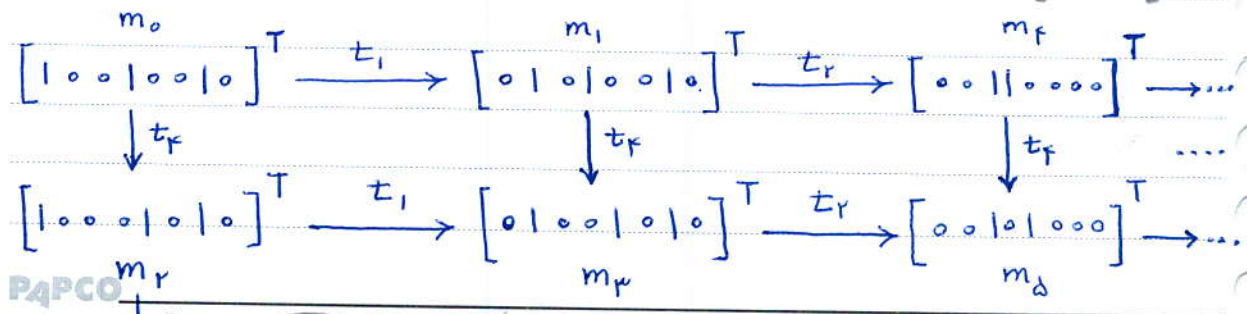 m₀ m₁ m۴
[1 0 0 1 0 0 1 0]ᵀ t₁ → [0 1 0 1 0 0 1 0]ᵀ t۲ → [0 0 1 1 0 0 0 0]ᵀ → ...
↓ t۴ ↓ t۴ ↓ t۴ ....
[1 0 0 0 1 0 1 0]ᵀ t₁ → [0 1 0 0 1 0 1 0]ᵀ t۲ → [0 0 1 0 1 0 0 0]ᵀ → ...
m۲ m۳ m۵
PAPCO